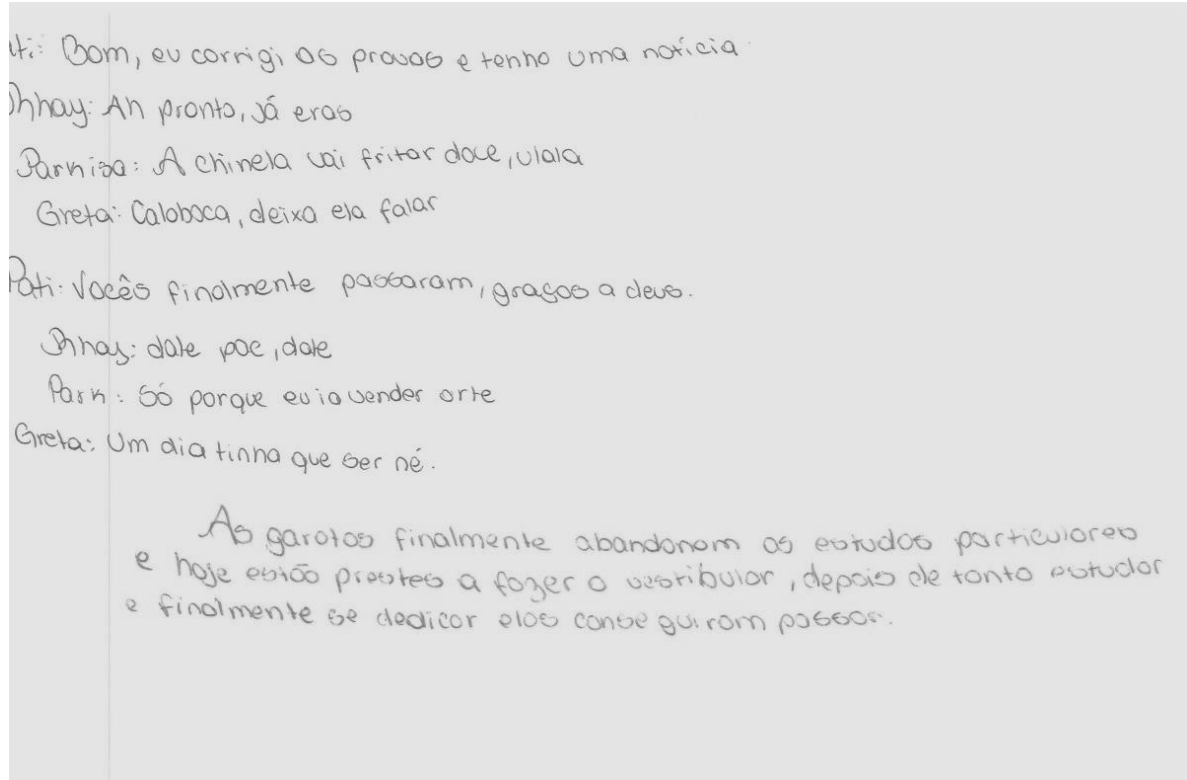 ti: Bom, eu corrigi as provas e tenho uma notícia.
Jhhay: Ah pronto, já eras
Parkisa: A chinela vai fritar doce, ulala
Greta: Calaboca, deixa ela falar
Pati: Vocês finalmente passaram, graças a deus.
Jhhay: dale poc, dale
Park: Só porque eu ia vender arte
Greta: Um dia tinha que ser né.
As garotas finalmente abandonam os estudos particulares
e hoje estão prestes a fazer o vestibular, depois de tanto estudar
e finalmente se dedicar elas conseguiram passar.